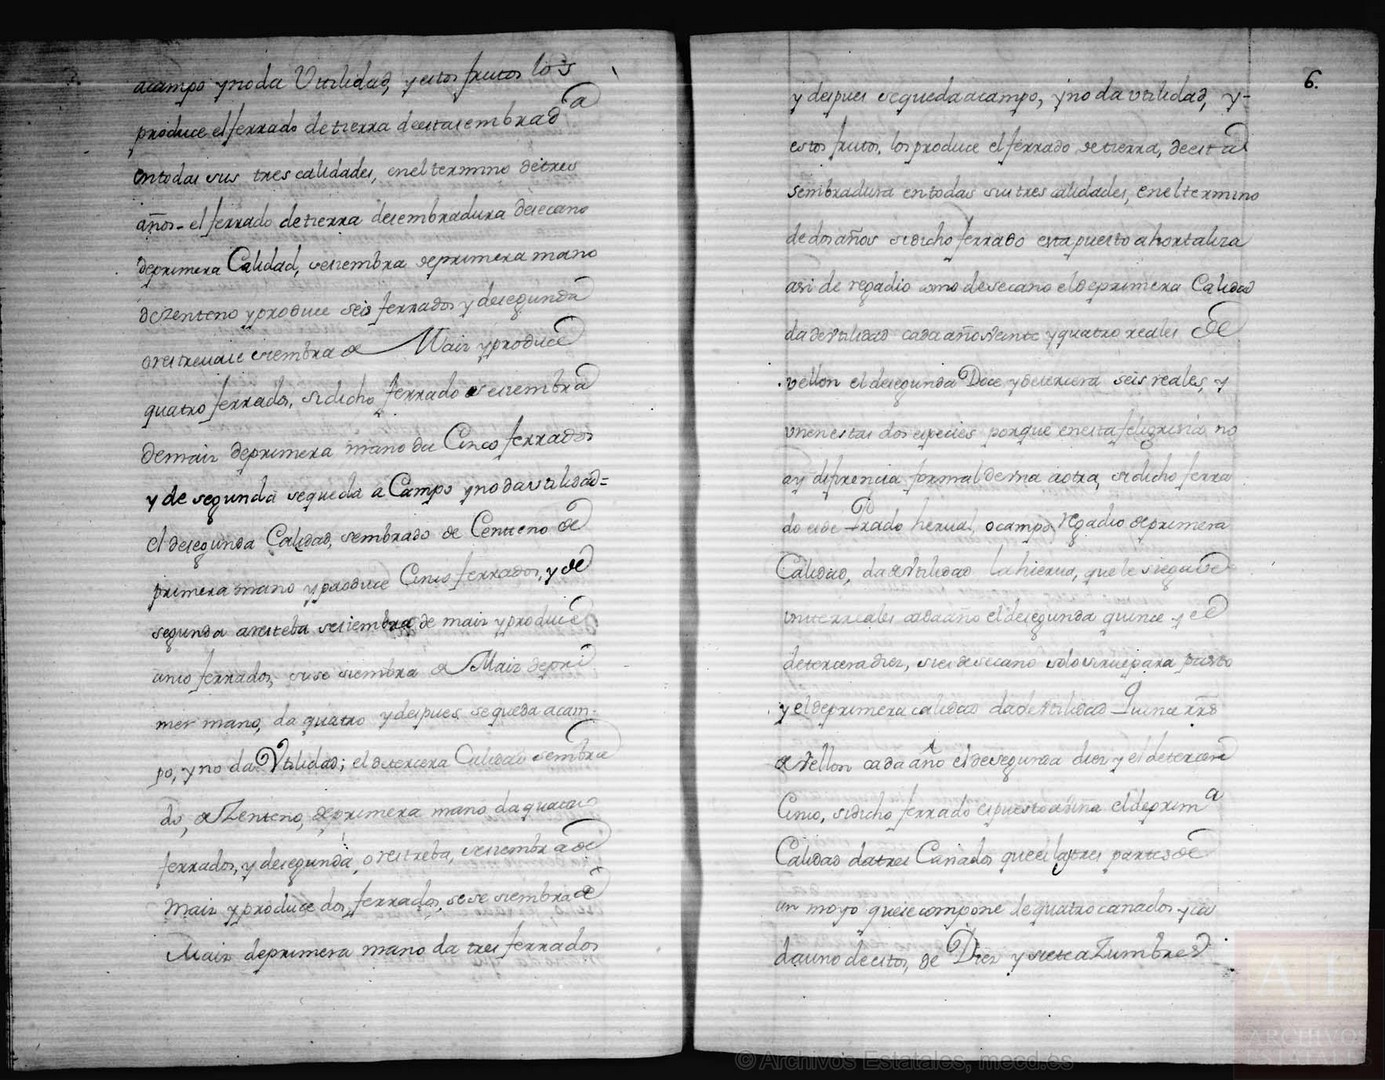 acampo y no da Utilidad, y estos frutos los
produce el ferrado de tierra de esta sembrad.a
en todas sus tres calidades, en el termino de tres
años - el ferrado de tierra de sembradura de secano
de primera Calidad, se siembra de primera mano
de Zenteno y produce seis ferrados y de segunda
o restreva se siembra de Maiz y produce
quatro ferrados, si dicho ferrado se siembra
de maiz de primera mano da Cinco ferrados
y de segunda se queda a Campo y no da utilidad=
el de segunda Calidad, sembrado de Centeno de
primera mano y produce Cinco ferrados, y de
segunda o resteba se siembra de maiz y produce
ferrados, si se siembra de Maiz de pri
mer mano, da quatro y despues se queda acam-
po, y no da Utilidad; el de tercera Calidad sembra
do, de Zenteno, de primera mano da quatro
ferrados, y de segunda, o restreba, se siembra de
maiz y produce dos ferrados, si se siembra de
Maiz de primera mano da tres ferrados
6.
y despues se queda acampo, y no da utilidad, y-
estos frutos, los produce el ferrado de tierra, de esta
sembradura en todas sus tres calidades, en el termino
de dos años si dicho ferrado esta puesto a hortaliza
asi de regadio como de secano el de primera Calidad
da de Utilidad cada año Veinte y quatro reales de
vellon el de segunda Doce y de tercera seis reales, y
unen estas dos especies porque en esta feligresia no
ay difrencia formal de una a otra, si dicho ferra
do es de Prado herval, o campo, regadio de primera
Calidad, da de Utilidad la hierva, que le siega Ve
inte reales cada año el de segunda quince y el
de tercera diez, si es de secano solo sirve para pasto
y el de primera calidad da de Utilidad Quince rrs
de Vellon cada año el de segunda diez y el de tercera
Cinco, si dicho ferrado es puesto a viña el de prim.a
Calidad da tres Cañados que es las tres partes de
un moyo que se compone de quatro cañados y ca
da uno de estos, de Diez y siete azumbres
© Archivos Estatales, mecd.es
AE
ARCHIVOS
ESTATALES